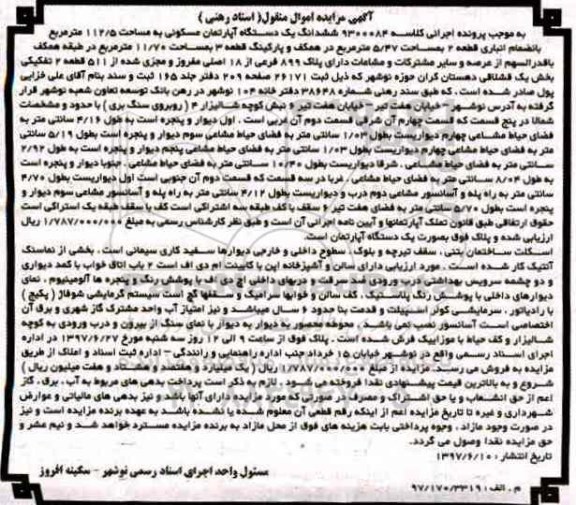 آگهی مزایده اموال منقول( اسناد رهنی )
به موجب پرونده اجرائی کلاسه ۹۳۰۰۰۸۴ ششدانگ یک دستگاه آپارتمان مسکونی به مساحت ۱۱۲/۵ مترمربع
بانضمام انباری قطعه ۲ بمساحت ۵/۴۷ مترمربع در همکف و پارکینگ قطعه ۳ بمساحت ۱۱/۷۰ مترمربع در طبقه همکف
باقدرالسهم از عرصه و سایر مشترکات و مشاعات دارای پلاک ۸۹۹ فرعی از ۱۸ اصلی مفروز و مجزی شده از ۵۱۱ قطعه ۲ تفکیکی
بخش یک قشلاقی دهستان کران حوزه نوشهر که ذیل ثبت ۲۶۱۷۱ صفحه ۲۰۹ دفتر جلد ۱۶۵ ثبت و سند بنام آقای علی خزایی
پول صادر شده است . که طبق سند رهنی شماره ۳۸۶۴۸ دفتر خانه ۱۰۴ نوشهر در رهن بانک توسعه تعاون شعبه نوشهر قرار
گرفته به آدرس نوشهر - خیابان هفت تیر - خیابان هفت تیر و نبش کوچه شالیزار ۴ ( روبروی سنگ بری ) با حدود و مشخصات
شمالا در پنج قسمت که قسمت چهارم آن شرقی قسمت دوم آن غربی است . اول دیوار و پنجره است به طول ۴/۱۶ سانتی متر به
فضای حیاط مشاعی چهارم دیواریست بطول ۱/۰۳ سانتی متر به فضای حیاط مشاعی سوم دیوار و پنجره است بطول ۵/۱۹ سانتی
متر به فضای حیاط مشاعی چهارم دیواریست بطول ۱/۰۳ سانتی متر به فضای حیاط مشاعی پنجم دیوار و پنجره است به طول ۲/۹۲
سانتی متر به فضای حیاط مشاعی . شرقا دیواریست بطول ۱۰/۴۰ سانتی متر به فضای حیاط مشاعی . جنوبا دیوار و پنجره است
به طول ۸/۰۴ سانتی متر به فضای حیاط مشاعی . غربا در سه قسمت که قسمت دوم آن جنوبی است اول دیواریست بطول ۴/۷۰
سانتی متر به راه پله و آسانسور مشاعی دوم درب و دیواریست بطول ۴/۱۲ سانتی متر به راه پله و آسانسور مشاعی سوم دیوار و
پنجره است بطول ۵/۷۰ سانتی متر به فضای هفت تیر . سقف با کف طبقه سه اشتراکی است کف با سقف طبقه یک استراکی است
حقوق ارتفاقی طبق قانون تملک آپارتمانها و آیین نامه اجرائی آن است و طبق نظر کارشناس رسمی به مبلغ ۱/۷۸۷/۰۰۰/۰۰۰ ریال
ارزیابی شده و پلاک فوق بصورت یک دستگاه آپارتمان است.
اسکلت ساختمان بتنی ، سقف تیرچه و بلوک ، سطوح داخلی و خارجی دیوارها سفید کاری سیمانی است ، بخشی از نماسنگ
آنتیک کار شده است . مورد ارزیابی دارای سالن و آشپزخانه اپن با کابینت ام دی اف است ۲ باب اتاق خواب با کمد دیواری
و دو چشمه سرویس بهداشتی درب ورودی ضد سرقت دربهای داخلی اچ دی اف با پوشش رنگ پنجره ها آلومینیوم . نمای
دیوارهای داخلی با پوشش رنگ پلاستیک . کف سالن و خوابها سرامیک و سقفها گچ است سیستم گرمایشی شوفاژ ( پکیج )
با رادیاتور . سرمایشی کولر اسپیلت و قدمت بنا حدود ۶ سال میباشد و نیز امتیاز آب واحد مشترک گاز شهری و برق آن
اختصاصی است آسانسور نصب نمی باشد . محوطه محصور به دیوار به دیوار با نمای سنگ از بیرون و درب ورودی به کوچه
شالیزار و کف حیاط با موزاییک فرش شده است . پلاک فوق از ساعت ۹ الی ۱۲ روز سه شنبه مورخ ۱۳۹۷/۶/۲۷ در اداره
اجرای اسناد رسمی واقع در نوشهر خیابان ۱۵ خرداد جنب اداره راهنمایی و رانندگی - اداره ثبت اسناد و املاک از طریق
مزایده به فروش می رسد. مزایده از مبلغ ۱/۷۸۷/۰۰۰/۰۰۰ ریال ( یک میلیارد و هفتصد و هشتاد و هفت میلیون ریال )
شروع و به بالاترین قیمت پیشنهادی نقدا فروخته می شود . لازم به ذکر است پرداخت بدهی های مربوط به آب ، برق ، گاز
اعم از حق انشعاب و یا حق اشتراک و مصرف در صورتی که مورد مزایده دارای آنها باشد و نیز بدهی های مالیاتی و عوارض
شهرداری و غیره تا تاریخ مزایده اعم از اینکه رقم قطعی آن معلوم شده یا نشده باشد به عهده برنده مزایده است و نیز
در صورت وجود مازاد ، وجوه پرداختی بابت هزینه های فوق از محل مازاد به برنده مزایده مسترد خواهد شد و نیم عشر و
حق مزایده نقدا وصول می گردد.
تاریخ انتشار : ۱۳۹۷/۶/۱۰
مسئول واحد اجرای اسناد رسمی نوشهر - سکینه افروز
م . الف : ۹۷/۱۷۰/۳۳۱۹